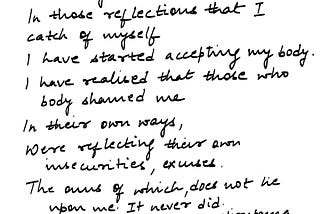 In those reflections that I
catch of myself
I have started accepting my body.
I have realised that those who
body shamed me
In their own ways,
Were reflecting their own
insecurities, excuses.
The onus of which, does not lie
upon me. It never did.